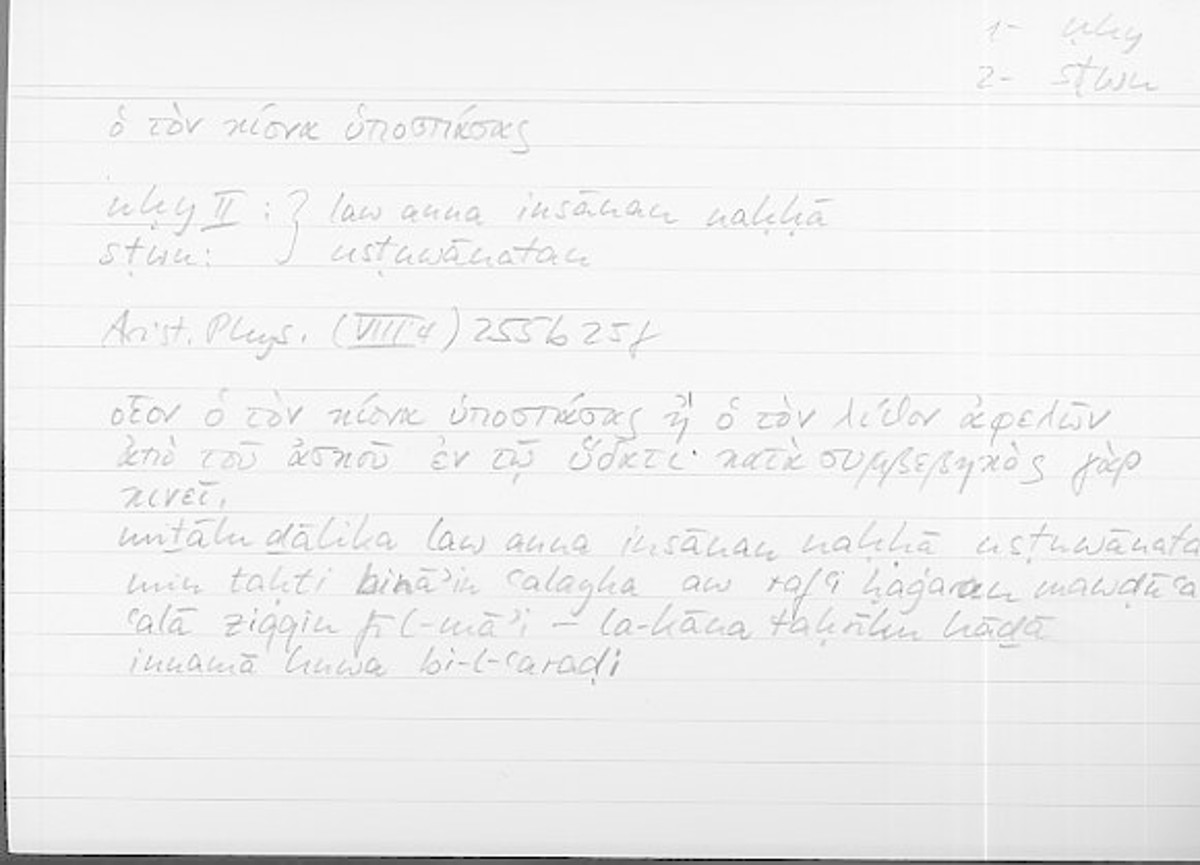 1- nḥy
2- sṭwn
ὁ τὸν κίονα ὑποσπάσας
nḥy II : } law anna insānan naḥḥā
sṭwn: } usṭuwānatan
Arist. Phys. (VIII 4) 255b 25f
οἷον ὁ τὸν κίονα ὑποσπάσας ἢ ὁ τὸν λίθον ἀφελὼν
ἀπὸ τοῦ ἀσκοῦ ἐν τῷ ὕδατι· κατὰ συμβεβηκὸς γὰρ
κινεῖ.
miṯālu ḏālika law anna insānan naḥḥā usṭuwānata
min taḥti bināʾin ʿalayha aw rafʿi ḥaǧaran mawḍūʿa
ʿalā ziqqin fī l-māʾi – la-kāna taḥrīku hāḏā
innamā huwa bi-l-ʿaraḍi